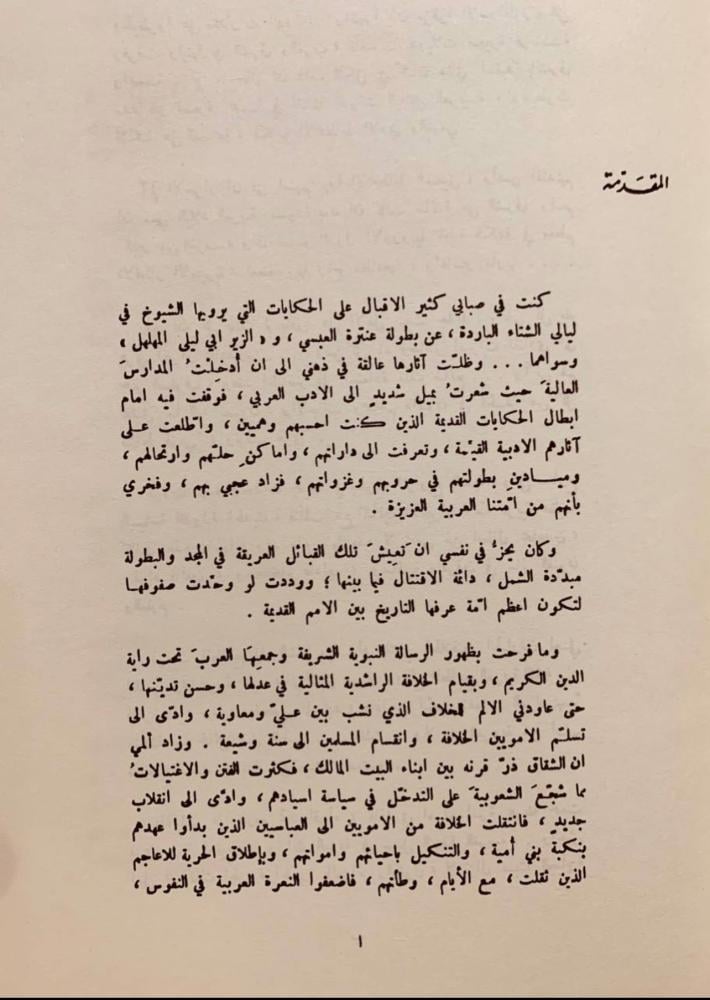 المقدّمة
كنت في صباي كثير الاقبال على الحكايات التي يرويها الشيوخ في
ليالي الشتاء الباردة ، عن بطولة عنترة العبسي ، و « الزير ابي ليلى المهلهل »
وسواهما ... وظلّت آثارها عالقة في ذهني الى ان أُدخِلْتُ المدارسَ
العاليةَ حيث شعرتُ بميل شديدٍ الى الادب العربي ، فوقفت فيه امام
ابطال الحكايات القديمة الذين كنت احسبهم وهميين ، واطّلعت على
آثارهم الادبية القيّمة ، وتعرفت الى داراتهم ، واماكنِ حلتّهم وارتحالهم ،
وميادينِ بطولتهم في حروبهم وغزواتهم ، فزاد عجبي بهم ، وفخري
بأنهم من امّتنا العربية العزيزة .
وكان يحزُّ في نفسي ان تَعيشَ تلك القبائل العريقة في المجد والبطولة
مبدّدة الشمل ، دائمة الاقتتال فيا بينها ؛ ووددت لو وحّدت صفوفها
لتكون اعظم امّة عرفها التاريخ بين الامم القديمة .
وما فرحت بظهور الرسالة النبوية الشريفة وجمعِهَا العربَ تحت راية
الدين الكريم ، وبقيام الخلافة الراشدية المثالية في عدلها ، وحسن تديّنها ،
حتى عاودني الالم للخلاف الذي نشب بين عليّ ومعاوية ، وادّى الى
تسلّم الامويين الخلافة ، وانقسام المسلمين الى سنة وشيعة . وزاد ألمي
ان الشقاق ذرّ قرنه بين ابناء البيت المالك ، فكثرت الفتن والاغتيالاتُ
مما شجّعَ الشعوبيةَ على التدخّل في سياسة اسيادهم ، وادّى الى انقلاب
جديدٍ ، فانتقلت الخلافة من الامويين الى العباسيين الذين بدأوا عهدهم
بنكبة بني أمية ، والتنكيل باحيائهم وامواتهم ، وبإطلاق الحرية للاعاجم
الذين ثقلت ، مع الأيام ، وطأتهم ، فاضعفوا النعرة العربية في النفوس ،
١